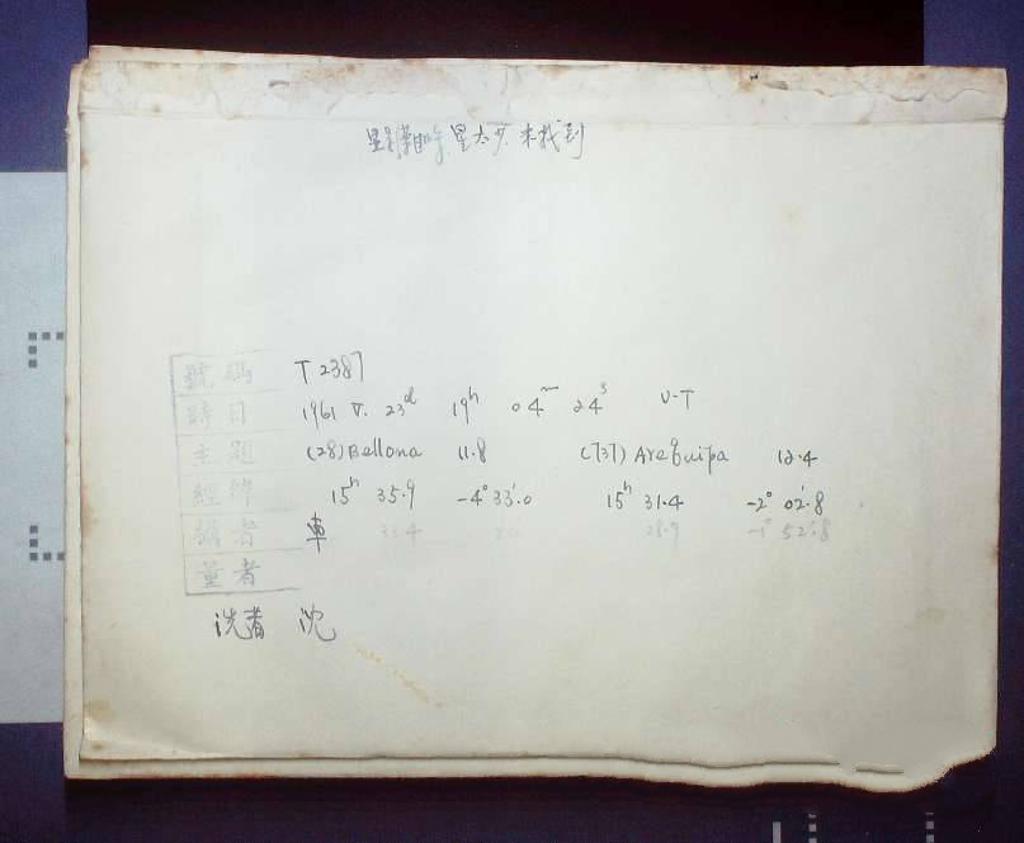 星太少 未找到
號碼 T 2387
時日 1961 V. 23ᵈ 19ʰ 04ᵐ 24ˢ U-T
主題 (28) Bellona 11.8 (737) Arequipa 12.4
經緯 15ʰ 35.9 -4° 33'.0 15ʰ 31.4 -2° 02'.8
攝者 車 33.4 28.9 -1° 52'.8
量者
洗者 沈